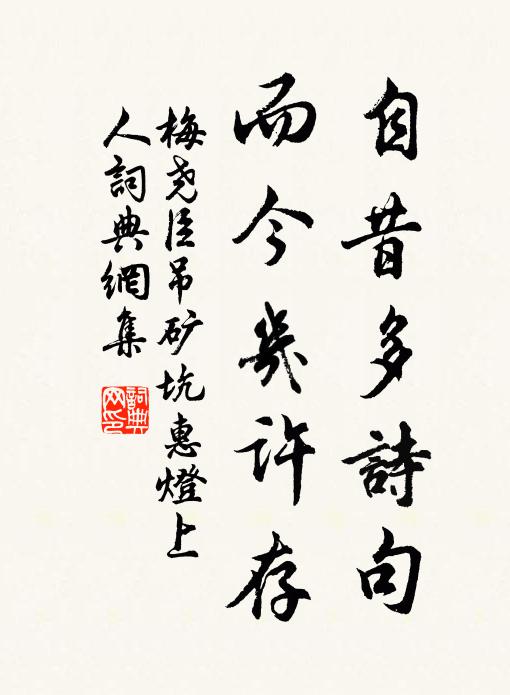 自昔多詩句
而今幾許存
梅尧臣吊矿坑惠燈上
人詞典網集
詞典
网印